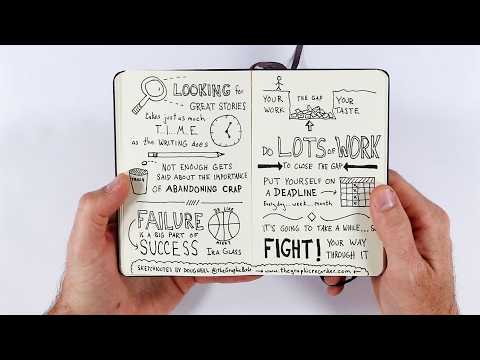 LOOKING for
GREAT STORIES
takes just as much
T.I.M.E.
as the WRITING does
NOT ENOUGH GETS
SAID ABOUT THE IMPORTANCE
OF ABANDONING CRAP
FAILURE
IS A BIG PART OF
SUCCESS
IRA GLASS
SKETCHNOTES BY DOUG NEILL @theGraphicRcrdr
YOUR WORK
THE GAP
YOUR TASTE
DO LOTS of WORK
TO CLOSE THE GAP
PUT YOURSELF ON
A DEADLINE
Every day... week... month
IT'S GOING TO TAKE A WHILE...
FIGHT! YOUR WAY
THROUGH IT
www.thegraphicrecorder.com